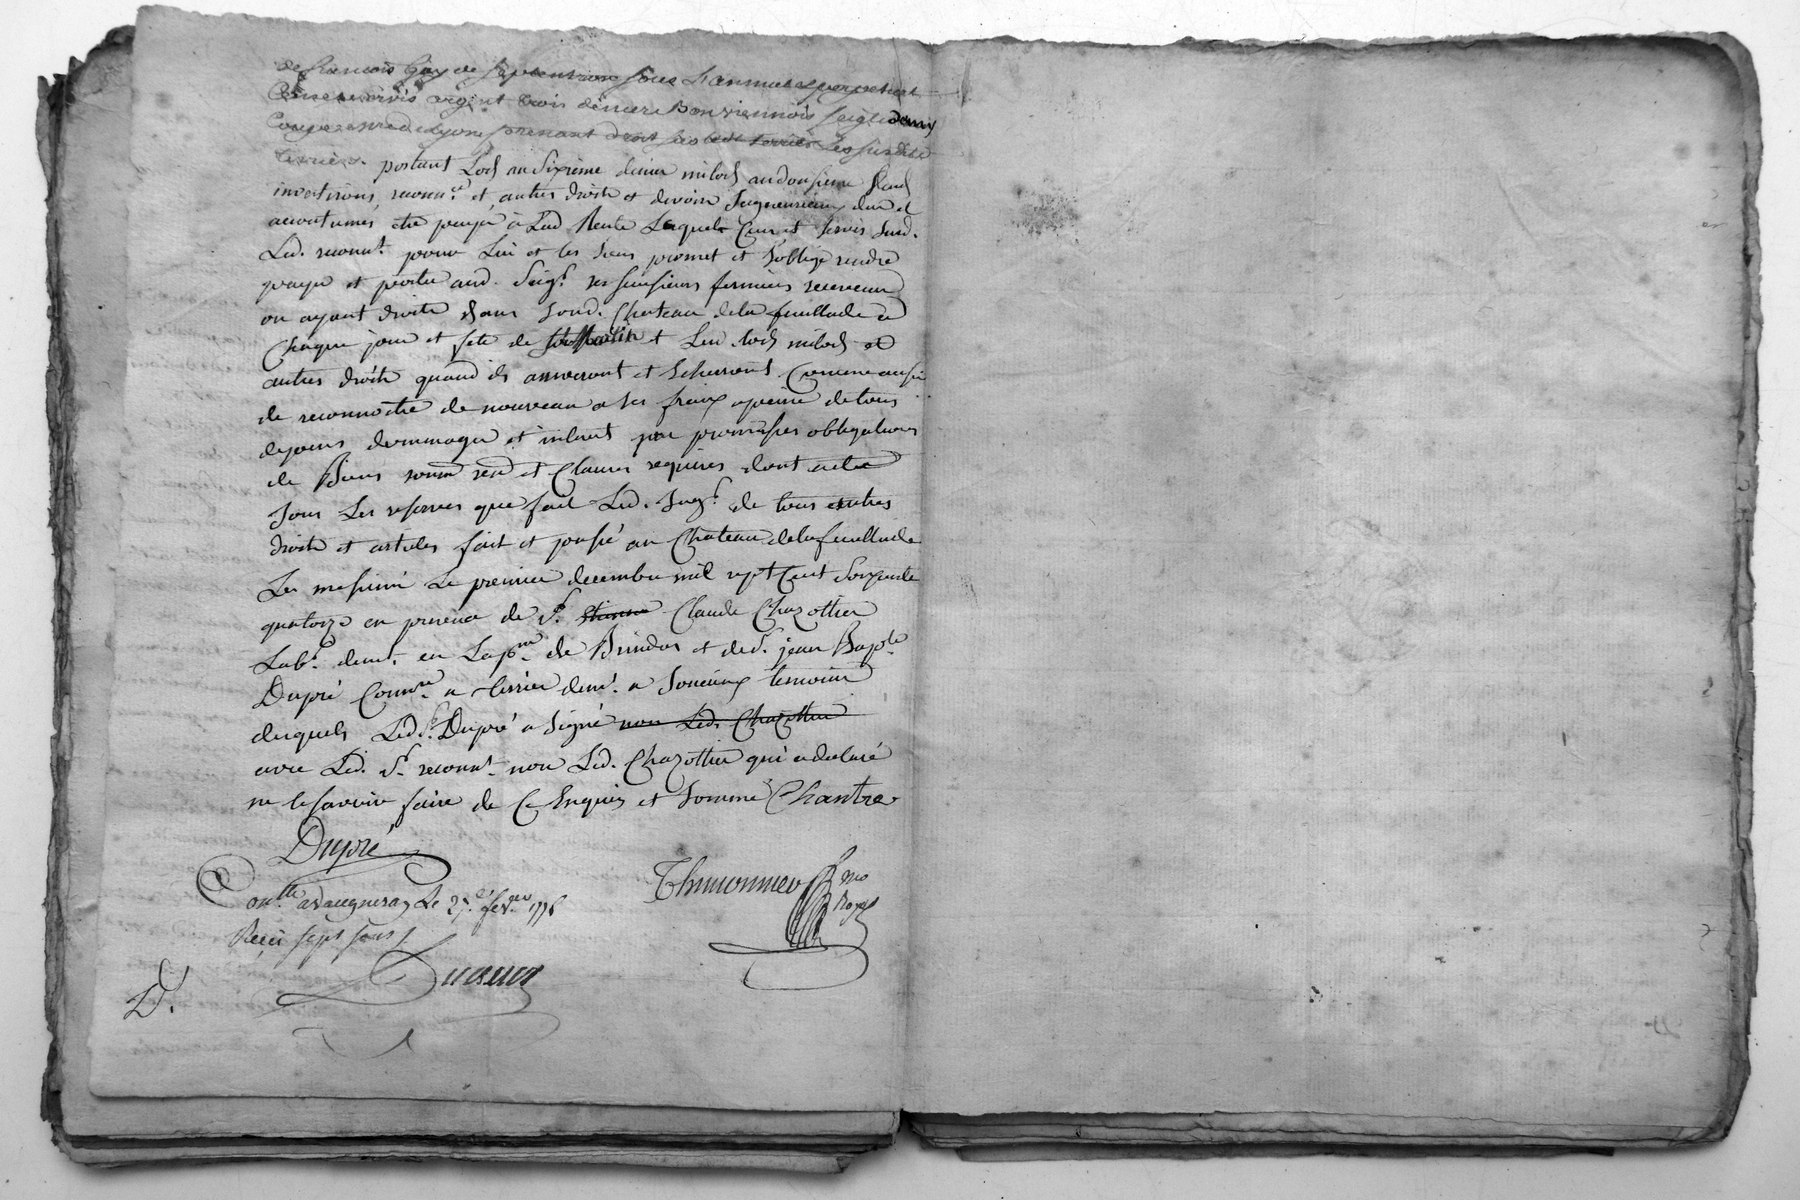 de francois Gay de septentrion sous L'annuel et perpetuel
Cens et servis argent trois deniers Bon viennois seigle demy
Coupe mesure de Lyon prenant droit sur led. terrier Les susdits
terriers. portant Lods au Sixieme denier milods au douzieme
investisons, reconn.ce et autres droits et devoirs Seigneuriaux dus et
accoutumes etre payer à Lad Rente Lesquels Cens et servis Susd.
Led. reconn.t pour Lui et les siens promet et s'oblige rendre
payer et porter aud. Seig.r ses sensieurs fermiers receveurs
ou ayant droits dans Sond. Chateau de la feuillade à
Chaque jour et fete de St Martin et Les d. lods milods et
autres droits quand ils arriveront et Echerront Comme aussi
de reconnoitre de nouveau a ses fraix a peine de tous
depens dommages et interets par promesses obligations
de Biens soum ren et Clauses requises dont acte
Sous Les reserves que fait Led. Seig.r de tous autres
droits et articles fait et passé au Chateau de la feuillade
Le premier decembre mil sept Cent Soixante
quatorze en presence de S.r Claude Chazottier
Lab.r dem.t en La p.sse de Brindas et de S.r jean Bap.te
Dupré Comm.re a terrier dem.t a Soucieux temoins
desquels Led S.r Dupré a signé non Led. Chazottier
avec Led. S.r reconn.t non Led. Chazottier qui a declaré
ne le savoir faire de Ce Enquis et Sommé Chantre
Dupré
Thimonnier no
Royal
Con.lle a Vaugneray Le 27.e fev.er 1776
Reçu sept sous
D.